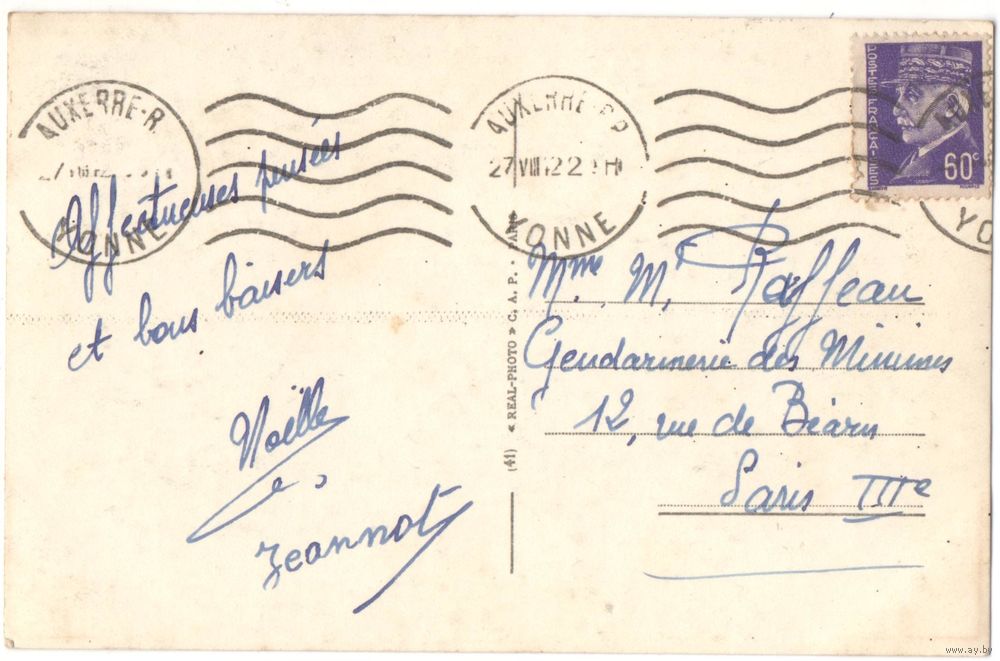 AUXERRE-R.P.
27 VIII 42
YONNE
AUXERRE-R.P
27 VIII 42
YONNE
POSTES FRANÇAISES
60c
YO
Affectueuses pensées
et bons baisers
Noëlle
Jeannot
(41) « REAL-PHOTO » C. A. P. - PARIS
Mme M. Raffeau
Gendarmerie des Minimes
12, rue de Béarn
Paris IIIe
www.ay.by